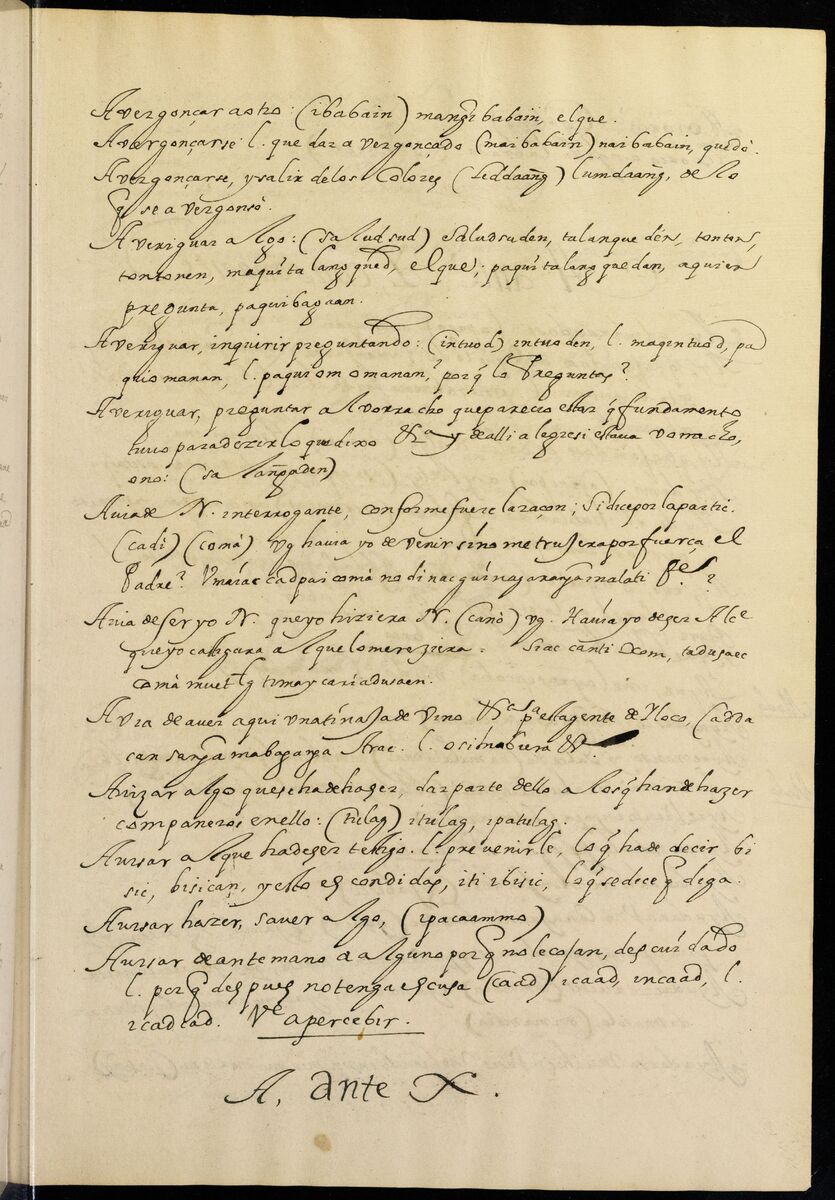 Avergonçar a otro: (ibabain) mangibabain, el que.
Avergonçarse l. quedar avergonçado (maibabain) naibabain, quedó.
Avergonçarse, y salir de los colores (leddaang) lumdaang, de lo
q̃ se avergonsó.
Averiguar algo: (saludsud) saludsuden, talanqueden, tonton,
tontonen, maquita lanq qued, el que; paquitalanquedan, a quien
pregunta, paquibagaan.
Averiguar, inquirir preguntando: (intuod) intuoden, l. magintuod, pa
quiomanan, l. paquiomomanan, porq̃ lo Preguntas?
Averiguar, preguntar al vorracho que parecio estar q̃ fundamento
tuvo para dezir lo que dixo &ª y de alli alegre si estava vorracho,
o no: (salangaden)
Avia de N. interrogante, conforme fuere la raçon; Si dice por la partic.
(cadi) (comà) vg havia yo de venir sino me truxera por fuerça el
Padre? Umáiac cadpai comà no di nac guinajaranga inalati Pe?
Avia de ser yo N. que yo hiziera N. (canò) vg. Havia yo de ser Alce
que yo castigara a el que lo mereziera. Siac canti xom, tadusaec
comà muet tumay cariadusaen.
Avia de aver aqui una tinaja de vino &ª pª esta gente de Yloco, (adda
can sanga mabaganga Arac. l. o si huviera &ª
Avizar algo que se ha de hazer, dar parte dello a los q̃ han de hazer
compañeros en ello: (tulag) itulag, ipatulag.
Avisar al que ha de ser testigo. l. prevenirle, lo q̃ ha de decir, bi
sic, bisican, y esto es condidas, iti ibisic, lo q̃ se dece q̃ diga.
Avisar hazer, saver algo, (ipacaammo)
Avisar de ante mano a alguno por q̃ no le cojan, descuidado
l. por q̃ despues no tenga escusa (caad) icaad, incaad, l.
icadcad. Ve apercebir.
A, ante X.